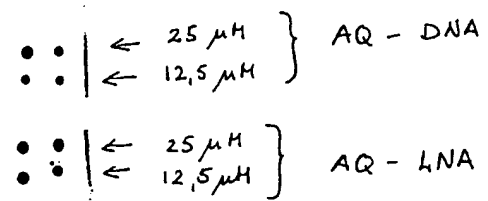 25 μM
12,5 μM
AQ - DNA
25 μM
12,5 μM
AQ - LNA